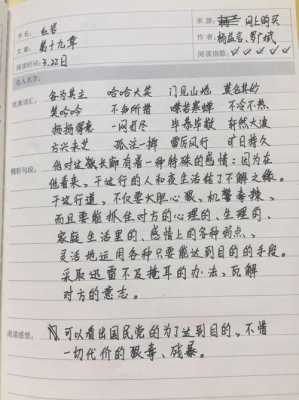 书名: 红岩
来源: 网上购买
文章: 第十九章
作者: 杨益言、罗广斌
阅读时间: 3.22日
阅读指数: ✓✓✓✓✓
名人名言:
优美词汇: 各为其主 哈哈大笑 门见山地 莫名其妙
笑吟吟 不知所措 不冷不热
扬扬得意 一网打尽 毕恭毕敬 轩然大波
方兴未艾 孤注一掷 雷厉风行 旷日持久
精彩句段: 他对这职务都有着一种特殊的感情:因为在
他看来,干这行的人和夜生活结了不解之缘。
干这行道,不仅要大胆心狠、机警毒辣、
而且要能抓住对方的心理的、生理的、
家庭生活里的、感情上的各种弱点、
灵活地运用各种只要能达到目的的手段。
采取迅雷不及掩耳的办法、瓦解
对方的意志。
阅读感悟: 可以看出国民党的为了达到目的、不惜
一切代价的狠毒、残暴。